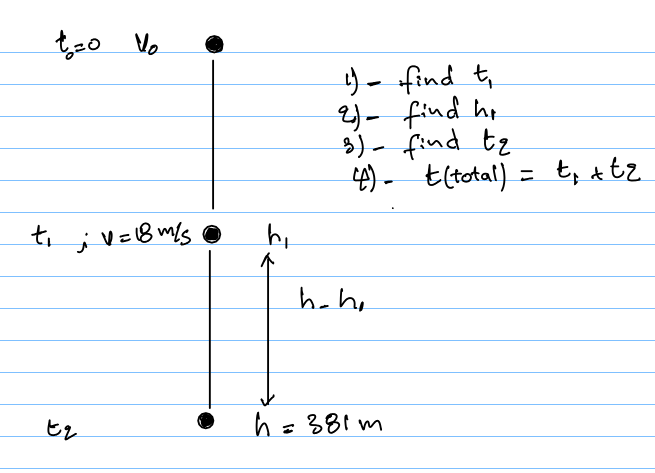 t₀=0 V₀
1)- find t₁
2)- find h₁
3)- find t2
4)- t(total) = t₁ + t2
t₁ ; v=18 m/s h₁
h-h₁
t2 h = 381 m